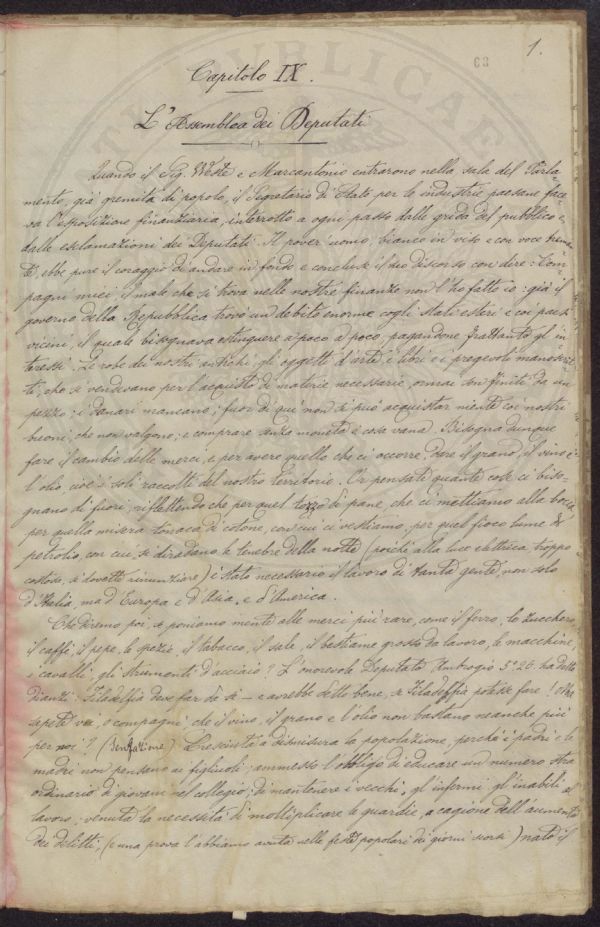 1.
68
Capitolo IX.
L'Assemblea dei Deputati
Quando il Sig. Veste e Marcantonio entrarono nella sala del Parla-
mento, già gremita di popolo, il Segretario di Stato per le industrie paesane face-
va l'esposizione finanziaria, interrotto a ogni passo dalle grida del pubblico e
dalle esclamazioni dei Deputati. Il pover'uomo, bianco in viso e con voce treman-
te, ebbe pure il coraggio di andare in fondo e concluse il suo discorso con dire: Com-
pagni miei, il male che si trova nelle nostre finanze non l'ho fatto io: già il
governo della Repubblica trovò un debito enorme cogli stati esteri e coi paesi
vicini, il quale bisognava estinguere a poco a poco, pagandone frattanto gl'in-
teressi. Le robe dei nostri antichi, gli oggetti d'arte, i libri e i pregevoli manoscrit-
ti, che si vendevano per l'acquisto di materie necessarie, ormai son finiti da un
pezzo; i danari mancano; fuor di qui non si può acquistar niente coi nostri
buoni, che non valgono; e comprare senza moneta è cosa vana. Bisogna dunque
fare il cambio delle merci, e per avere quello che ci occorre, dare il grano, il vino e
l'olio, cioè i soli raccolti del nostro territorio. Or pensate quante cose ci biso-
gnano di fuori, riflettendo che per quel tozzo di pane, che ci mettiamo alla bocca,
per quella misera tonaca di cotone, con cui ci vestiamo, per quel fioco lume di
petrolio, con cui si diradano le tenebre della notte (poichè alla luce elettrica, troppo
costosa, si dovette rinunziare) è stato necessario il lavoro di tanta gente, non solo
d'Italia, ma d'Europa e d'Asia, e d'America.
Che diremo poi, se poniamo mente alle merci più rare, come il ferro, lo zucchero,
il caffè, il pepe, le spezie, il tabacco, il sale, il bestiame grosso da lavoro, le macchine,
i cavalli, gli strumenti d'acciaio? L'onorevole Deputato Ambrogio 3° 26. ha detto
dianzi: Filadelfia deve far da sè – e avrebbe detto bene, se Filadelfia potesse fare! O non
sapete voi, o compagni che il vino, il grano e l'olio non bastano neanche più
per noi? (Sensazione) Cresciuta a dismisura la popolazione, perchè i padri e le
madri non pensano ai figliuoli; ammesso l'obbligo di educare un numero stra-
ordinario di giovani nel collegio; di mantenere i vecchi, gl'infermi, gl'inabili al
lavoro; venuta la necessità di moltiplicare le guardie, a cagione dell'aumento
dei delitti, (e una prova l'abbiamo avuta nelle feste popolari dei giorni scorsi) nato il